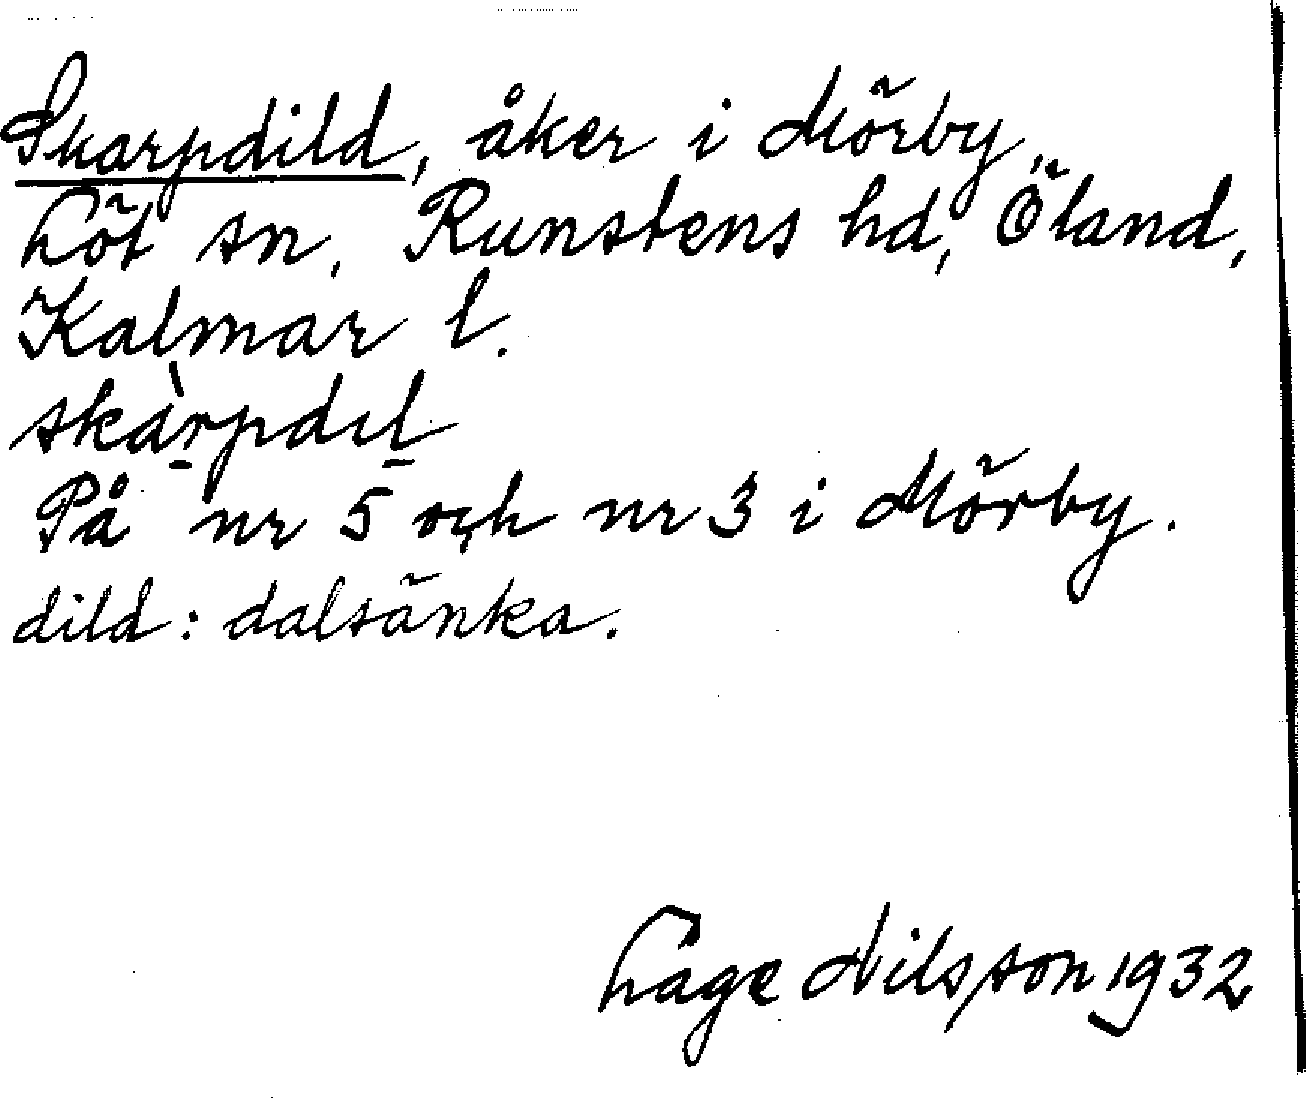 Skarpdild, åker i Mörby,
Löt sn, Runstens hd, Öland,
Kalmar l.
skàrpdıl
På nr 5 och nr 3 i Mörby.
dild: dalsänka.
Lage Nilsson 1932